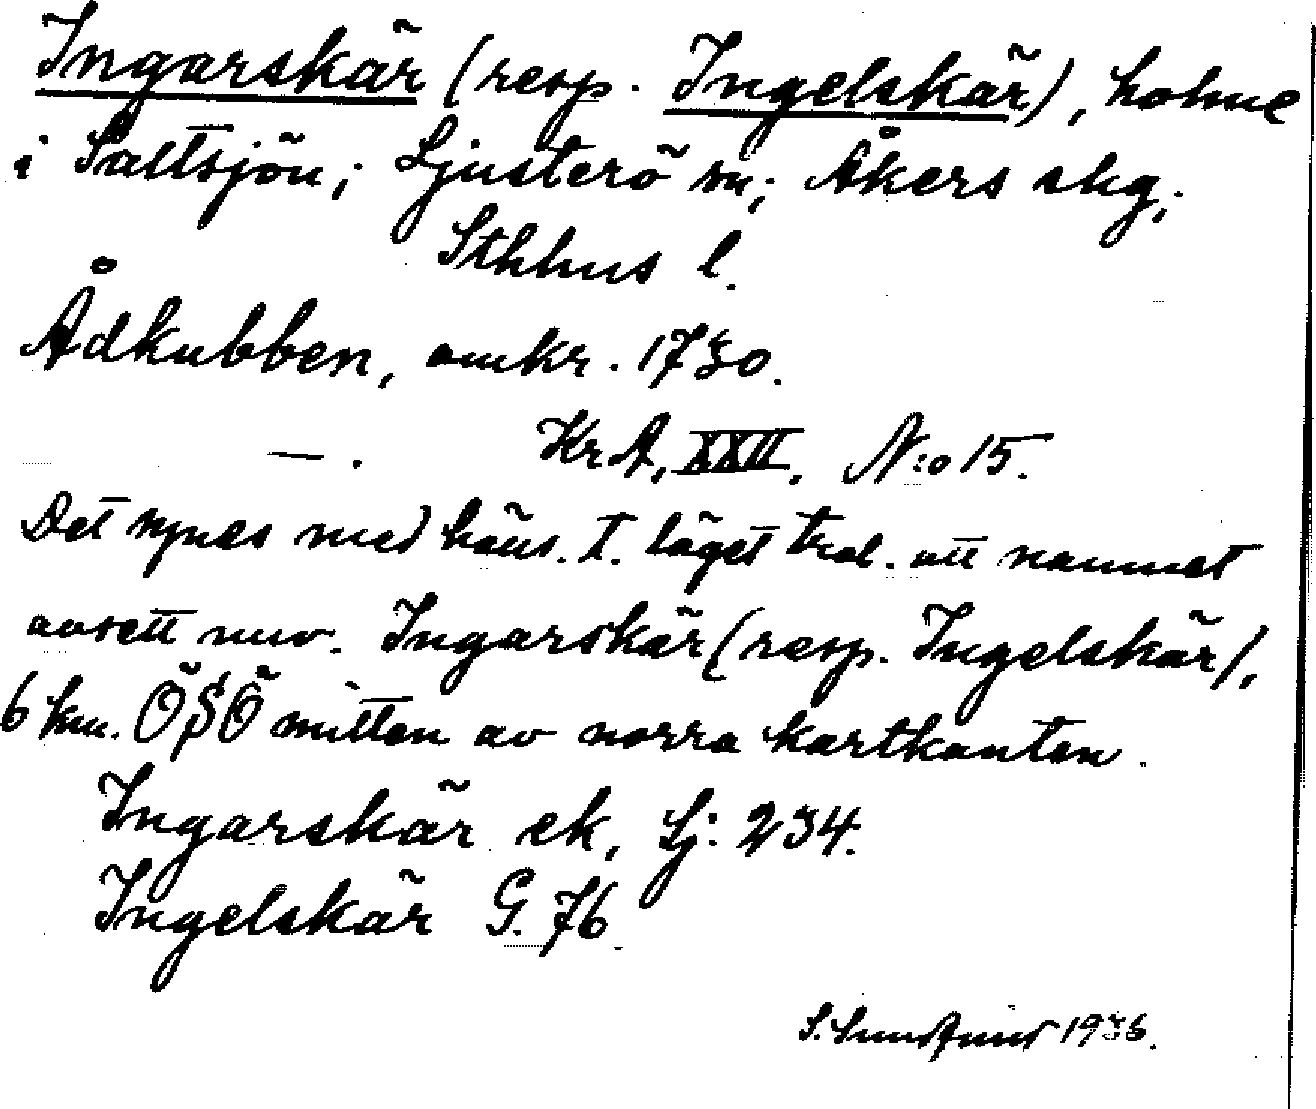 Ingarskär (resp. Ingelskär), holme
i Saltsjön; Ljusterö sn; Åkers skg;
Sthlms l.
Ådkubben, omkr. 1730.
— . KrA, XXII, N:o 15.
Det synes med häns. t. läget trol. att namnet
avsett nuv. Ingarskär (resp. Ingelskär),
6 km. ÖSÖ mitten av norra kartkanten.
Ingarskär ek, Lj: 234.
Ingelskär G. 76
S. 1936.